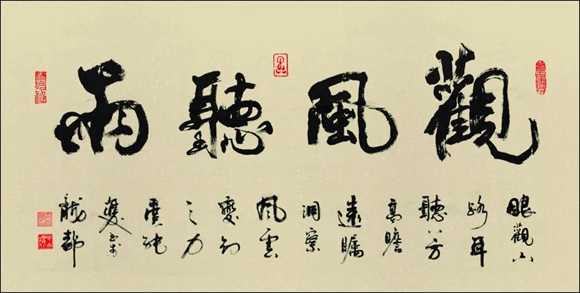 觀風聽雨
眼觀六
路耳
聽八方
高瞻
遠矚
洞察
風雲
變幻
之力
龍都